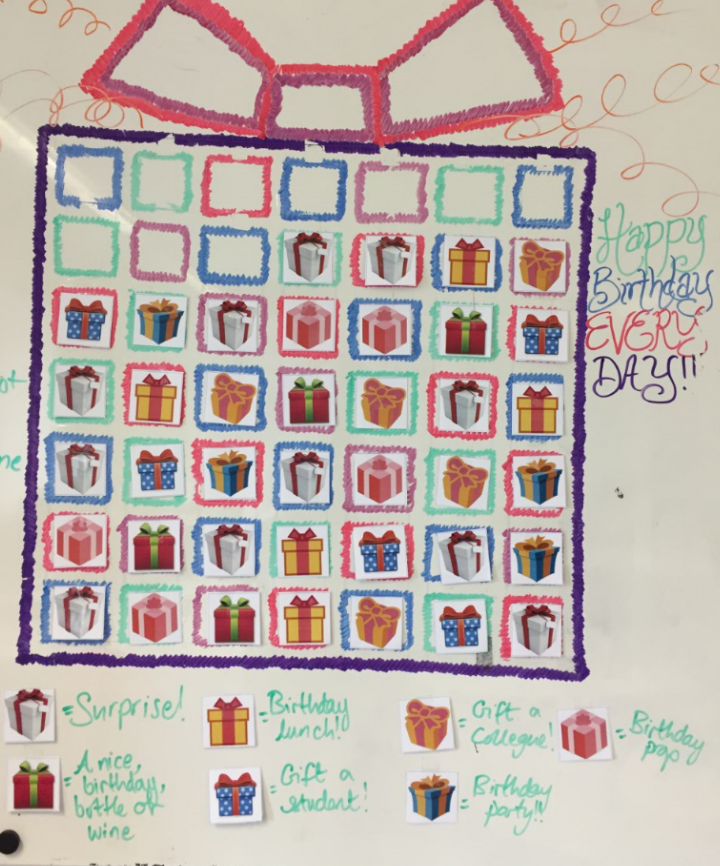 Happy
Birthday
EVERY
DAY!!
ot
me
= Surprise!
= Birthday
Lunch!
= Gift a
Collegue!
= Birthday
pop
= A nice,
birthday,
bottle of
wine
= Gift a
student!
= Birthday
party!!